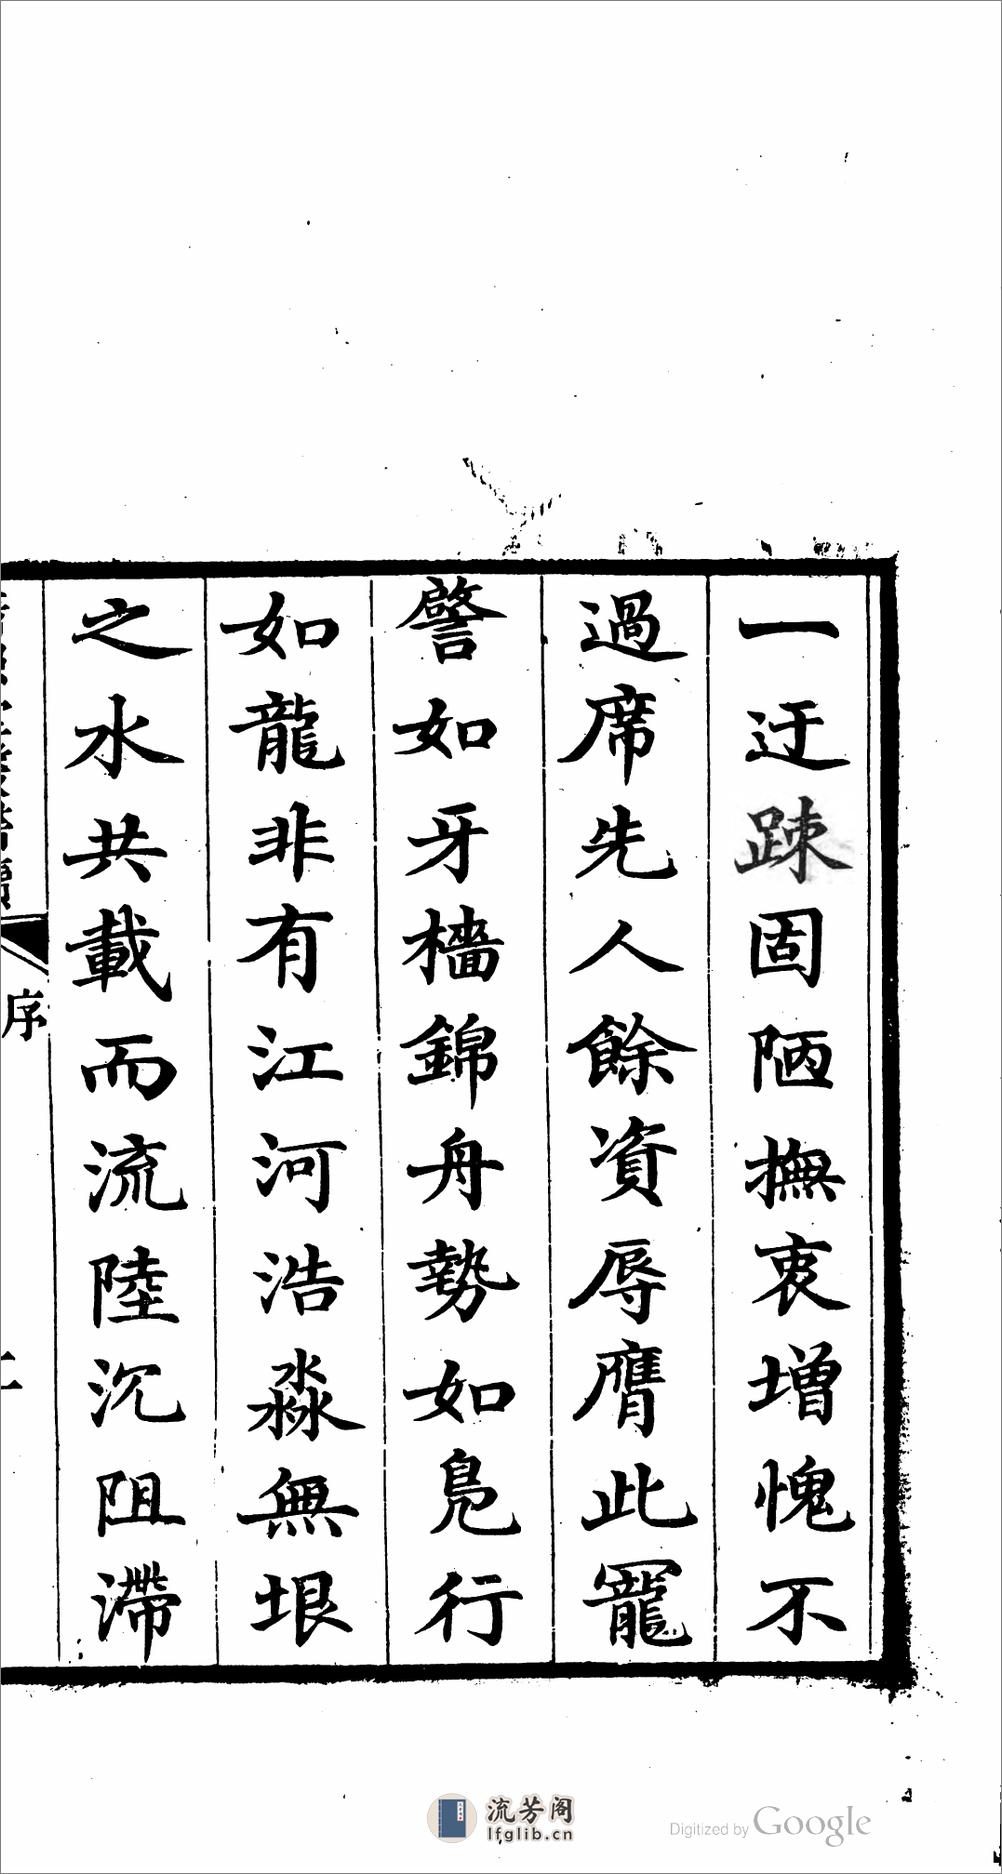 一迂踈固陋撫衷增愧不
過席先人餘資辱膺此寵
譬如牙檣錦舟勢如鳬行
如龍非有江河浩淼無垠
之水共載而流陸沉阻滯
序
流芳阁
lfglib.cn
Digitized by Google